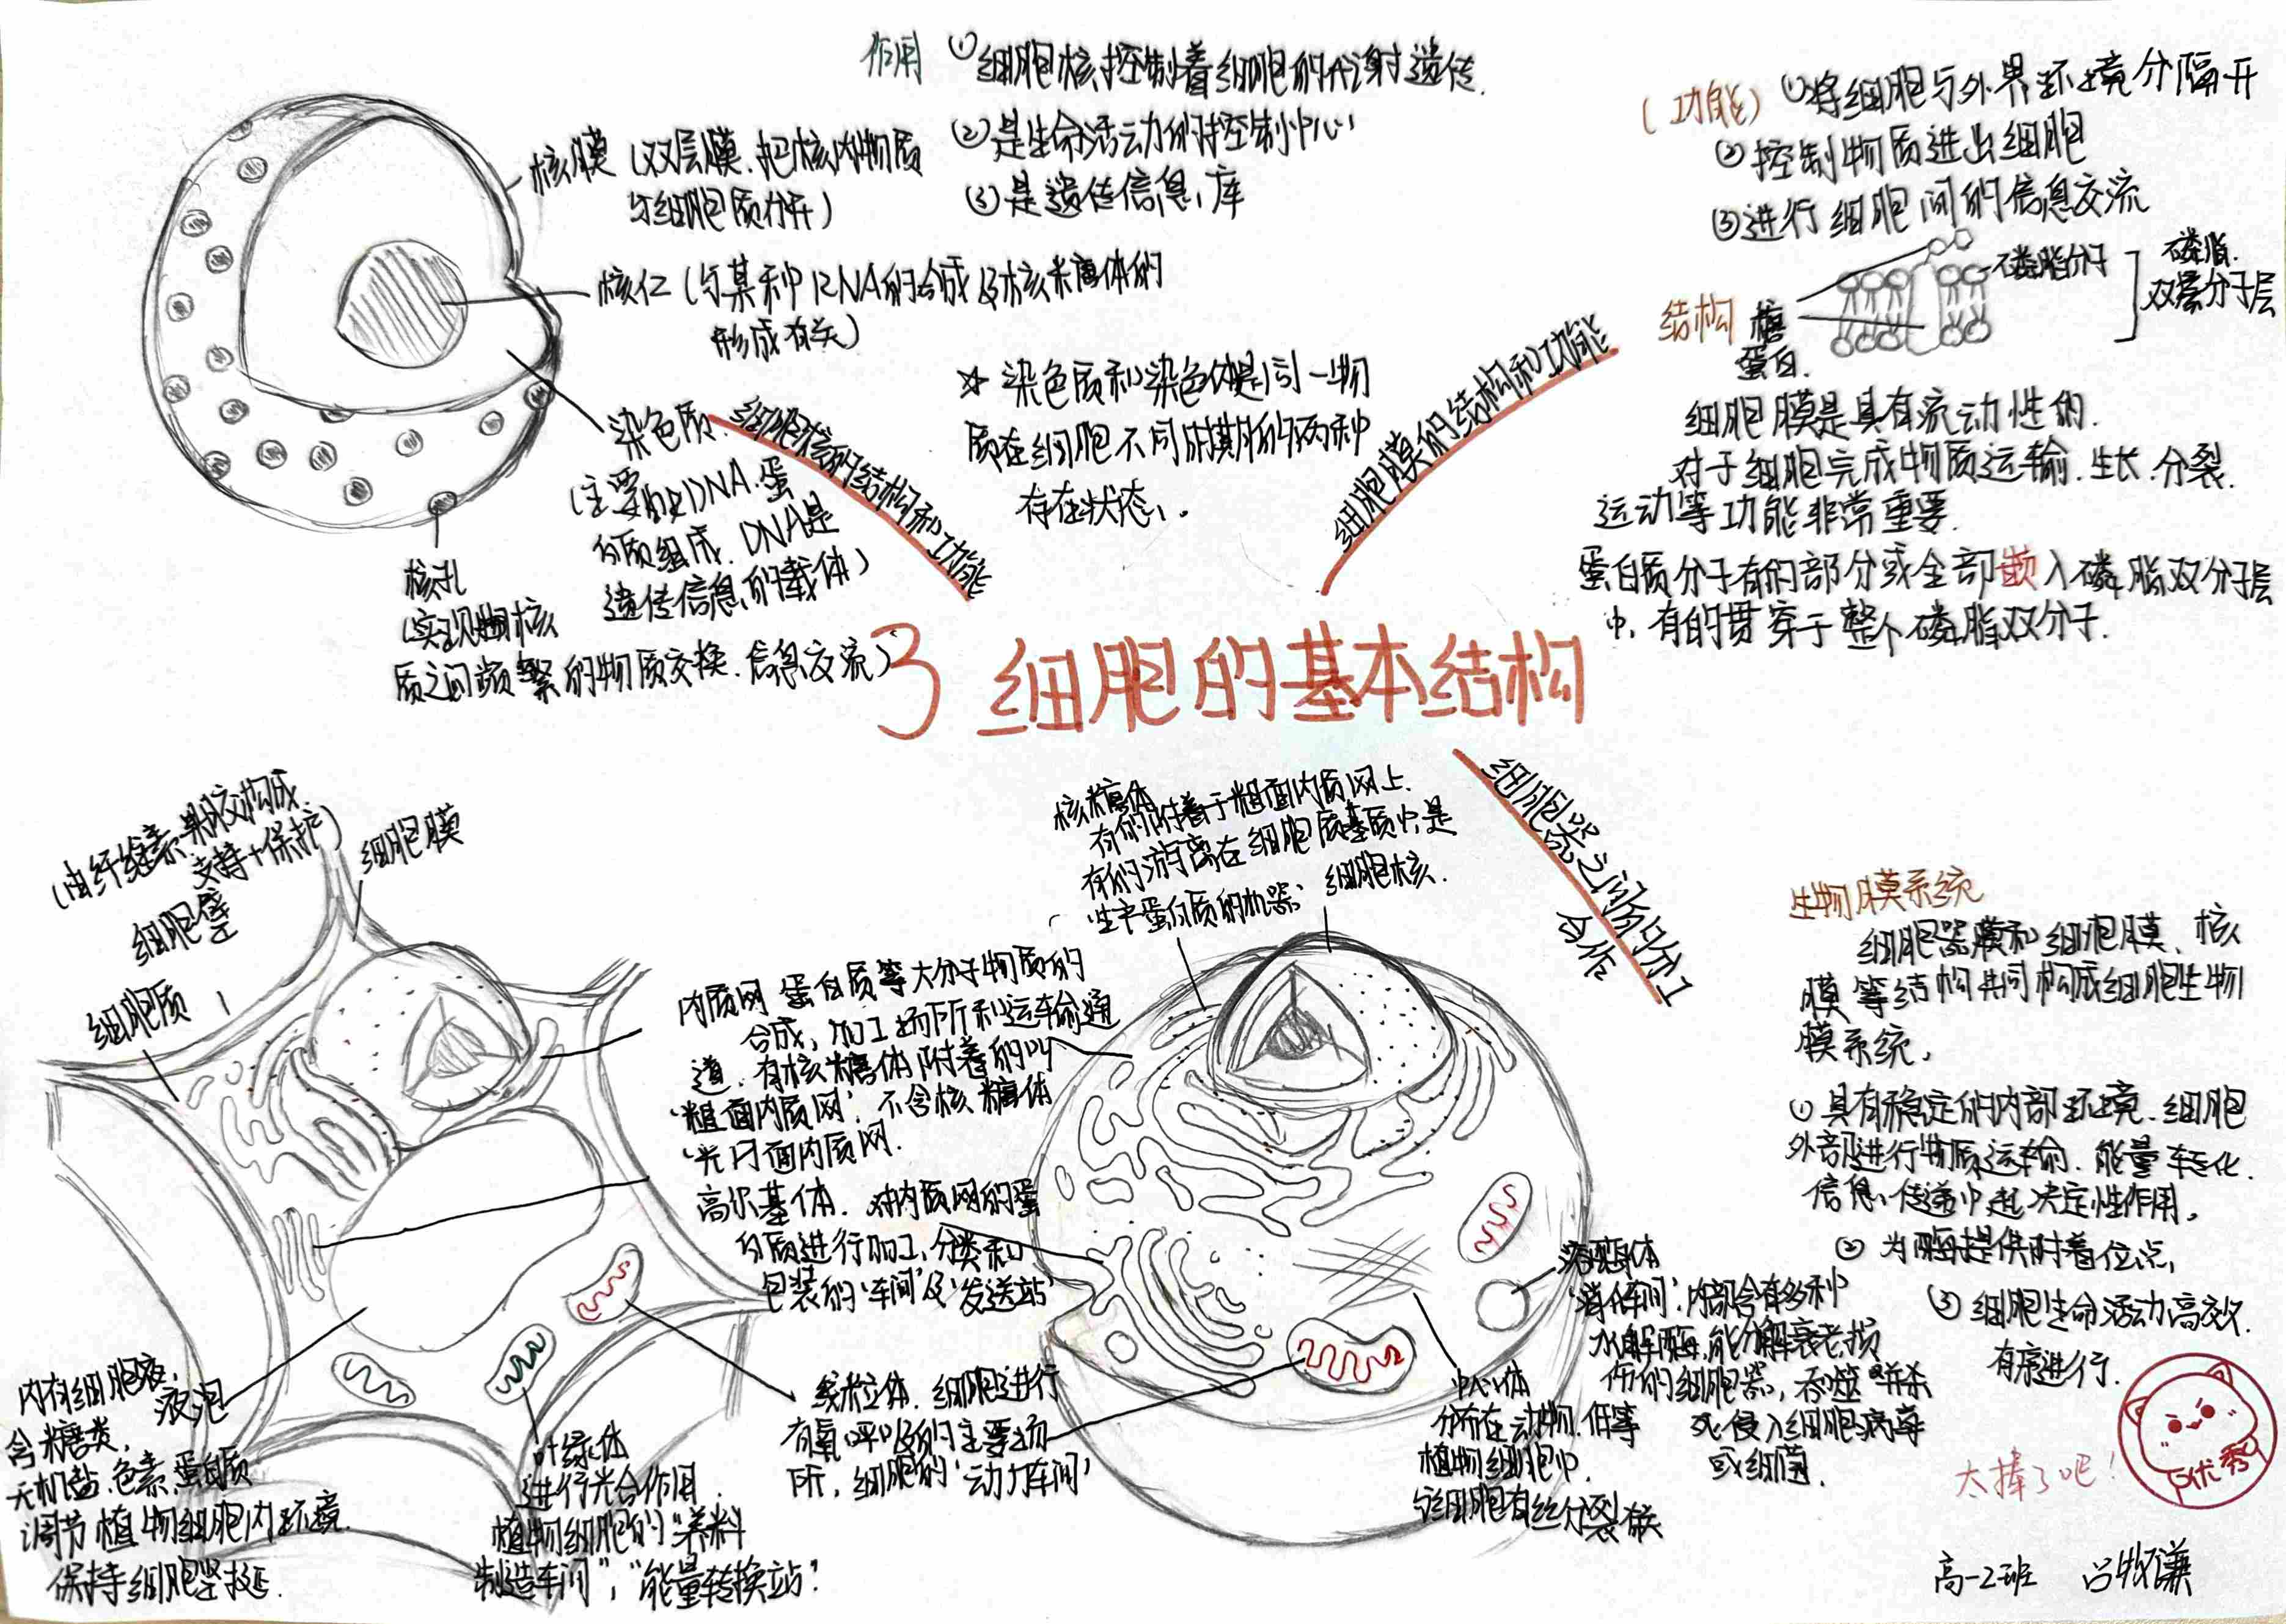 作用 ①细胞核控制着细胞的代谢遗传.
②是生命活动的控制中心
③是遗传信息库
核膜（双层膜.把核内物质
与细胞质分开）
核仁（与某种RNA的合成及核糖体的
形成有关）
☆ 染色质和染色体是同一物
质在细胞不同时期的两种
存在状态.
染色质.
（主要由DNA.蛋
白质组成.DNA是
遗传信息的载体）
核孔
（实现核
质之间频繁的物质交换.信息交流）
细胞核的结构和功能
细胞膜的结构和功能
（功能）①将细胞与外界环境分隔开
②控制物质进出细胞
③进行细胞间的信息交流
磷脂分子
磷脂.
双层分子层
结构 糖
蛋白.
细胞膜是具有流动性的.
对于细胞完成物质运输.生长.分裂.
运动等功能非常重要.
蛋白质分子有的部分或全部嵌入磷脂双分子层
中,有的贯穿于整个磷脂双分子.
3 细胞的基本结构
细胞器之间的分工
合作
（由纤维素.果胶构成.
支持+保护）
细胞壁
细胞膜
细胞质
核糖体
有的附着于粗面内质网上.
有的游离在细胞质基质中,是
"生产蛋白质的机器"
细胞核.
内质网 蛋白质等大分子物质的
合成,加工场所和运输通
道.有核糖体附着的叫
'粗面内质网',不含核糖体
'光滑面内质网.
高尔基体.对内质网的蛋
白质进行加工,分类和
包装的'车间'及'发送站'
线粒立体.细胞进行
有氧呼吸的主要场
所,细胞的'动力车间'
内有细胞液,
液泡
含糖类,
无机盐.色素.蛋白质
调节植物细胞内环境.
保持细胞坚挺.
叶绿体
进行光合作用.
植物细胞的"养料
制造车间","能量转换站"
溶酶体
'消化车间',内部含有多种
水解酶,能分解衰老损
伤的细胞器,吞噬并杀
死侵入细胞病毒
或细菌.
中心体
分布在动物.低等
植物细胞中.
与细胞有丝分裂有关
生物膜系统
细胞器膜和细胞膜、核
膜等结构共同构成细胞生物
膜系统,
①具有稳定的内部环境.细胞
外部进行物质运输.能量转化.
信息传递中起决定性作用,
②为酶提供附着位点,
③细胞生命活动高效.
有序进行.
太棒了吧!
优秀
高一2班 吕牧谦